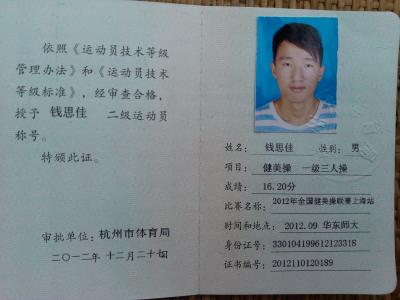 依照《运动员技术等级
管理办法》和《运动员技术
等级标准》，经审查合格，
授予 钱思佳 二级运动员
称号。
特颁此证。
审批单位：杭州市体育局
二〇一二年 十二月 二十四
姓名： 钱思佳 性别： 男
项目： 健美操 一级三人操
成绩： 16.20分
比赛名称：2012年全国健美操联赛上海站
时间和地点：2012.09 华东师大
身份证号：330104199612123318
证书编号：2012110120189